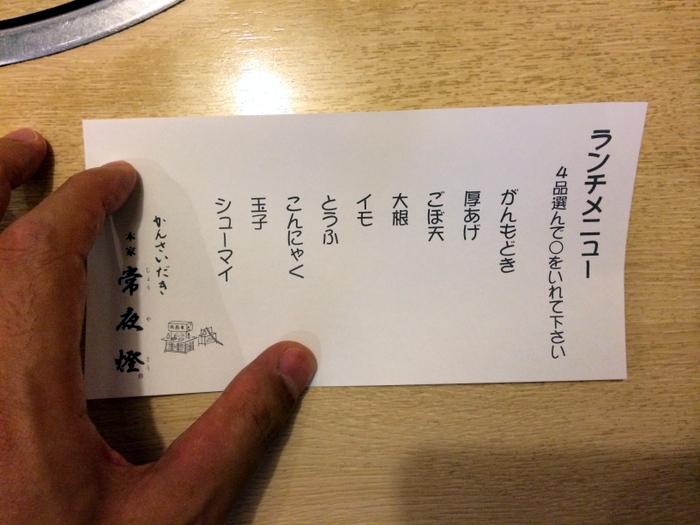 ランチメニュー
4品選んで○をいれて下さい
がんもどき
厚あげ
ごぼ天
大根
イモ
とうふ
こんにゃく
玉子
シューマイ
かんさいだき
本家
常夜燈
じょうやとう